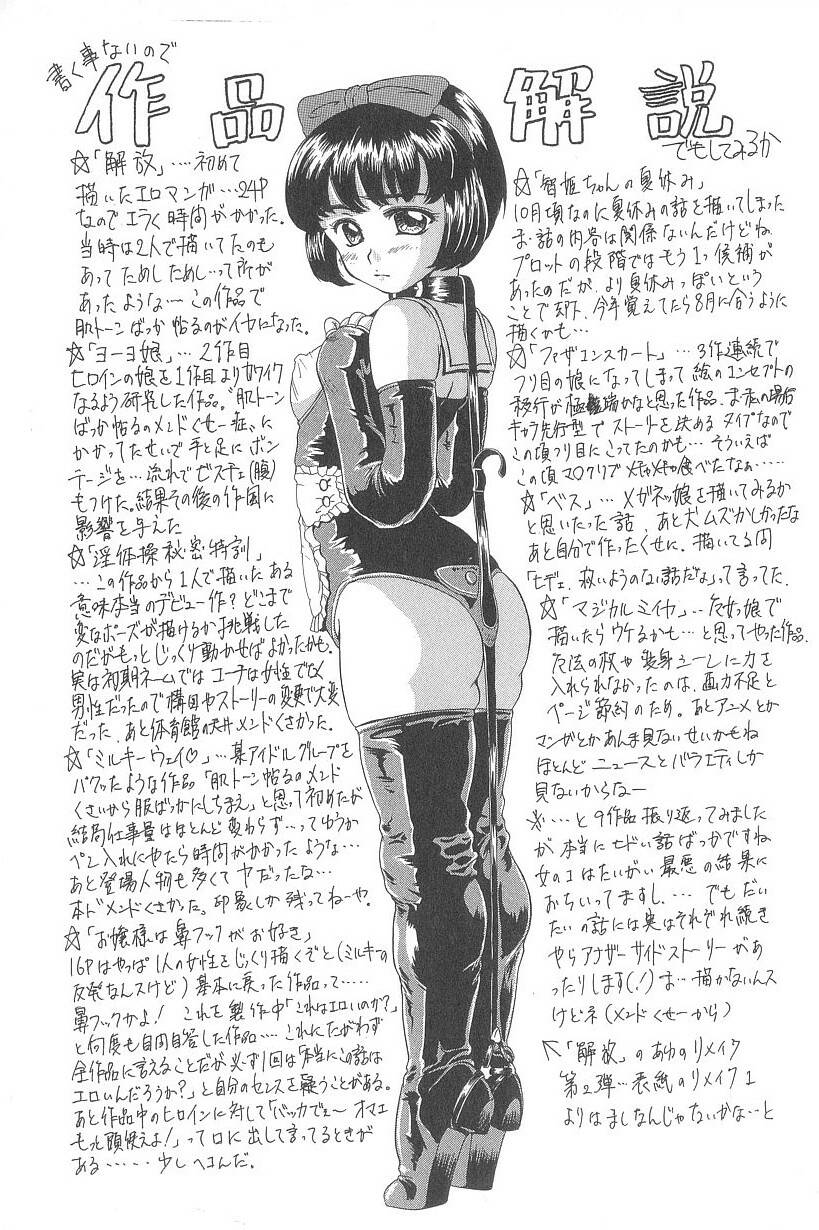 書く事ないので
作品解説
でもしてみるか
☆「解放」‥‥初めて
描いたエロマンガ‥‥24P
なのでエラく時間がかかった。
当時は2人で描いてたのも
あって ためしためし‥って所が
あったような〜 この作品で
肌トーンばっか帖るのがイヤになった。
☆「ヨーヨ娘」‥‥2作目
ヒロインの娘を1作目よりカワイク
なるよう研究した作品。"肌トーン
ばっか帖るのメンドくせー症"に
かかってたせいで手と足にボン
テージを‥‥流れでゼスチェ(腹)
もつけた。結果その後の作風に
影響を与えた
☆「淫体操秘密特訓」
‥‥この作品から1人で描いた ある
意味本当のデビュー作？どこまで
変なポーズが描けるか挑戦した
のだがもっとじっくり動かせばよかったかも。
実は初期ネームでは コーチは女性でなく
男性だったので構図やストーリーの変更で大変
だった。あと体育館の天井メンドくさかった。
☆「ミルキーウェイ♡」‥‥某アイドルグループを
パクッたような作品「肌トーン帖るのメンド
くさいから服ばっかにしちまえ」と思って初めたが
結局仕事量はほとんど変わらず‥‥ってゆうか
ペン入れにやたら時間がかかったような‥‥
あと登場人物も多くてヤだったな‥‥
本ドメンドくさかった。印象しか残ってねーや。
☆「お嬢様は鼻フックがお好き」
16Pはやっぱ1人の女性をじっくり描くぞと(ミルキーの
反発なんスけど)基本に戻った作品って‥‥‥
鼻フックかよ！ これを製作中「これはエロいのか？」
と何度も自問自答した作品‥‥ これにたがわず
全作品に言えることだが必ず1回は「本当にこの話は
エロいんだろうか？」と自分のセンスを疑うことがある。
あと作品中のヒロインに対して「バッカでぇ〜 オマエ
もっと頭使えよ！」って口に出して言ってるときが
ある‥‥‥少しヘコんだ。
☆「智姫ちゃんの夏休み」
10月頃なのに夏休みの話を描いてしまった
ま、話の内容は関係ないんだけどね
プロットの段階ではもう1つ候補が
あったのだが、より夏休みっぽいという
ことで却下、今年覚えてたら8月に合うように
描くかも‥‥
☆「ファザコンスカート」‥‥3作連続で
ツリ目の娘になってしまって絵のコンセプトの
移行が極端かなと思った作品、ま、私の場合
キャラ先行型でストーリーを決めるタイプなので
この頃ツリ目にこってたのかも‥‥ そういえば
この頃マロクリプメチャメチャ食べたなぁ‥‥‥
☆「ベス」‥‥メガネッ娘を描いてみるか
と思いたった話、あと犬ムズかしかったな
あと自分で作ったくせに、描いてる間
「ヒデェ、救いようのない話だな」って言ってた.
☆「マジカルミイヤ」‥‥魔女っ娘で
描いたらウケるかも‥‥と思ってやった作品.
魔法の杖や変身シーンに力を
入れられなかったのは、画力不足と
ページ節約のため。あとアニメとか
マンガとかあんま見ないせいかもね
ほとんどニュースとバラエティしか
見ないからなー
※‥‥と9作品振り返ってみました
が本当にヒドい話ばっかですね
女のコはたいがい最悪の結果に
おちいってますし‥‥ でもだい
たいの話には実はそれぞれ続き
やらアナザーサイドストーリーがあ
ったりします(！) ま‥描かないんス
けどネ(メンドくせーから)
↖「解放」のあゆのリメイク
第2弾‥‥表紙のリメイク1
よりはましなんじゃないかな〜と